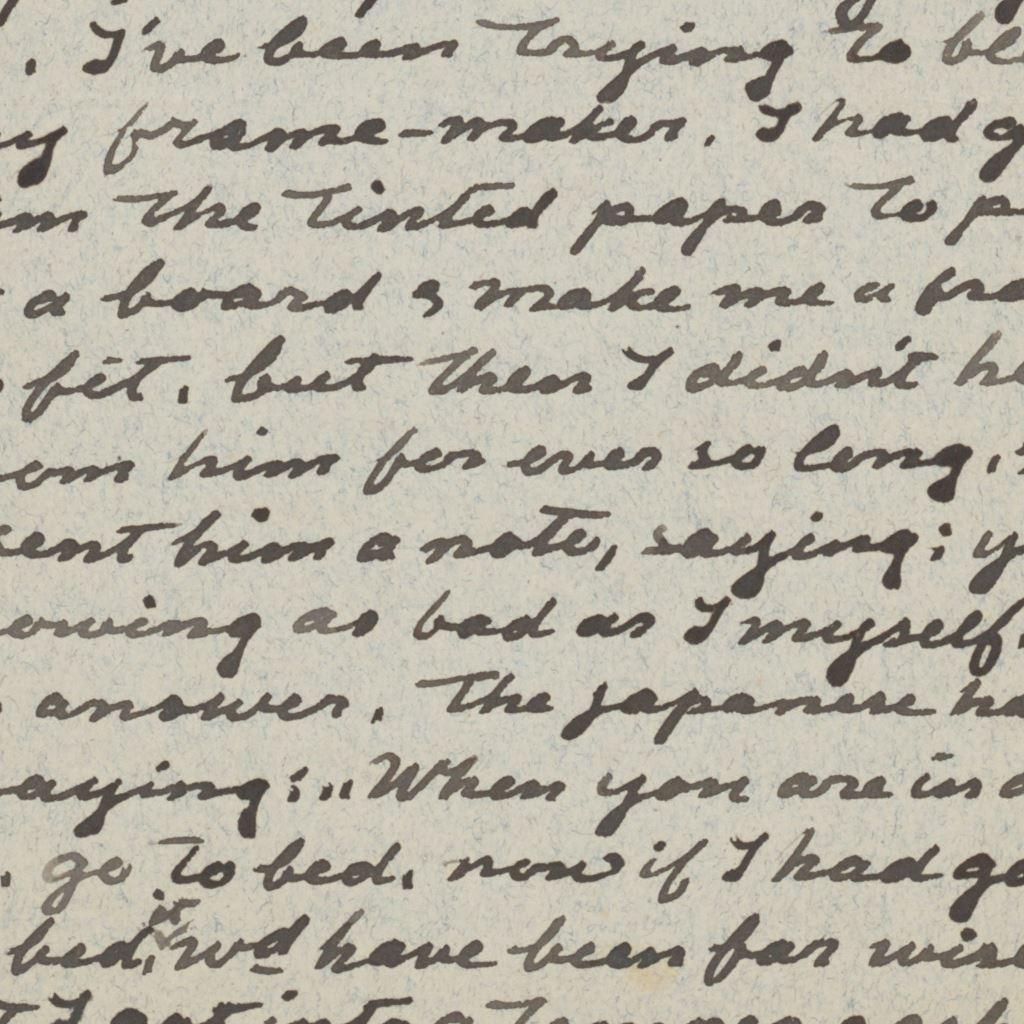 . I've been trying to ble
y frame-maker. I had g
im the tinted paper to p
a board & make me a fra
fit, but then I didn't he
om him for ever so long,
sent him a note, saying; y
owing as bad as I myself.
answer. The japanese ha
aying: „When you are in a
. go to bed, now if I had go
bed, it wd have been far wise
t I got into a